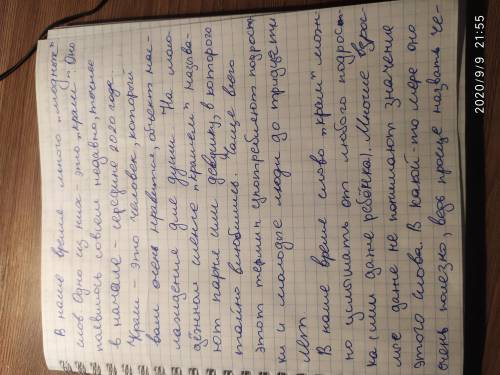 В наше время много "модных"
слов. Одно из них - это "краш". Оно
появилось совсем недавно, точнее
в начале - середине 2020 года.
"Краш - это человек, который
вам очень нравится, объект нас-
лаждения для души. На моло-
дёжном сленге "крашем" называ-
ют парня или девушку, в которого
тайно влюбились. Чаще всего
этот термин употребляют подрост-
ки и молодые люди до тридцати
лет.
В наше время слово "краш" мож-
но услышать от любого подрост-
ка (или даже ребёнка). Многие взрос-
лые даже не понимают значение
этого слова. В какой-то мере оно
очень полезно, ведь проще назвать че-
2020/9/9 21:55